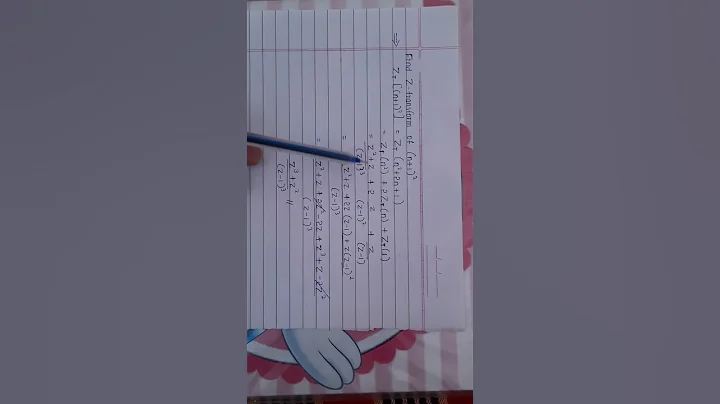 Find Z-transform of (n+1)²
⇒ Z_T[(n+1)²] = Z_T (n²+2n+1)
= Z_T(n²) + 2Z_T(n) + Z_T(1)
= z²+z/(z-1)³ + 2 z/(z-1)² + z/(z-1)
= z²+z+2z(z-1)+z(z-1)²/(z-1)³
= z²+z+2z²-2z+z³+z-2z²/(z-1)³
z³+z²/(z-1)³ //